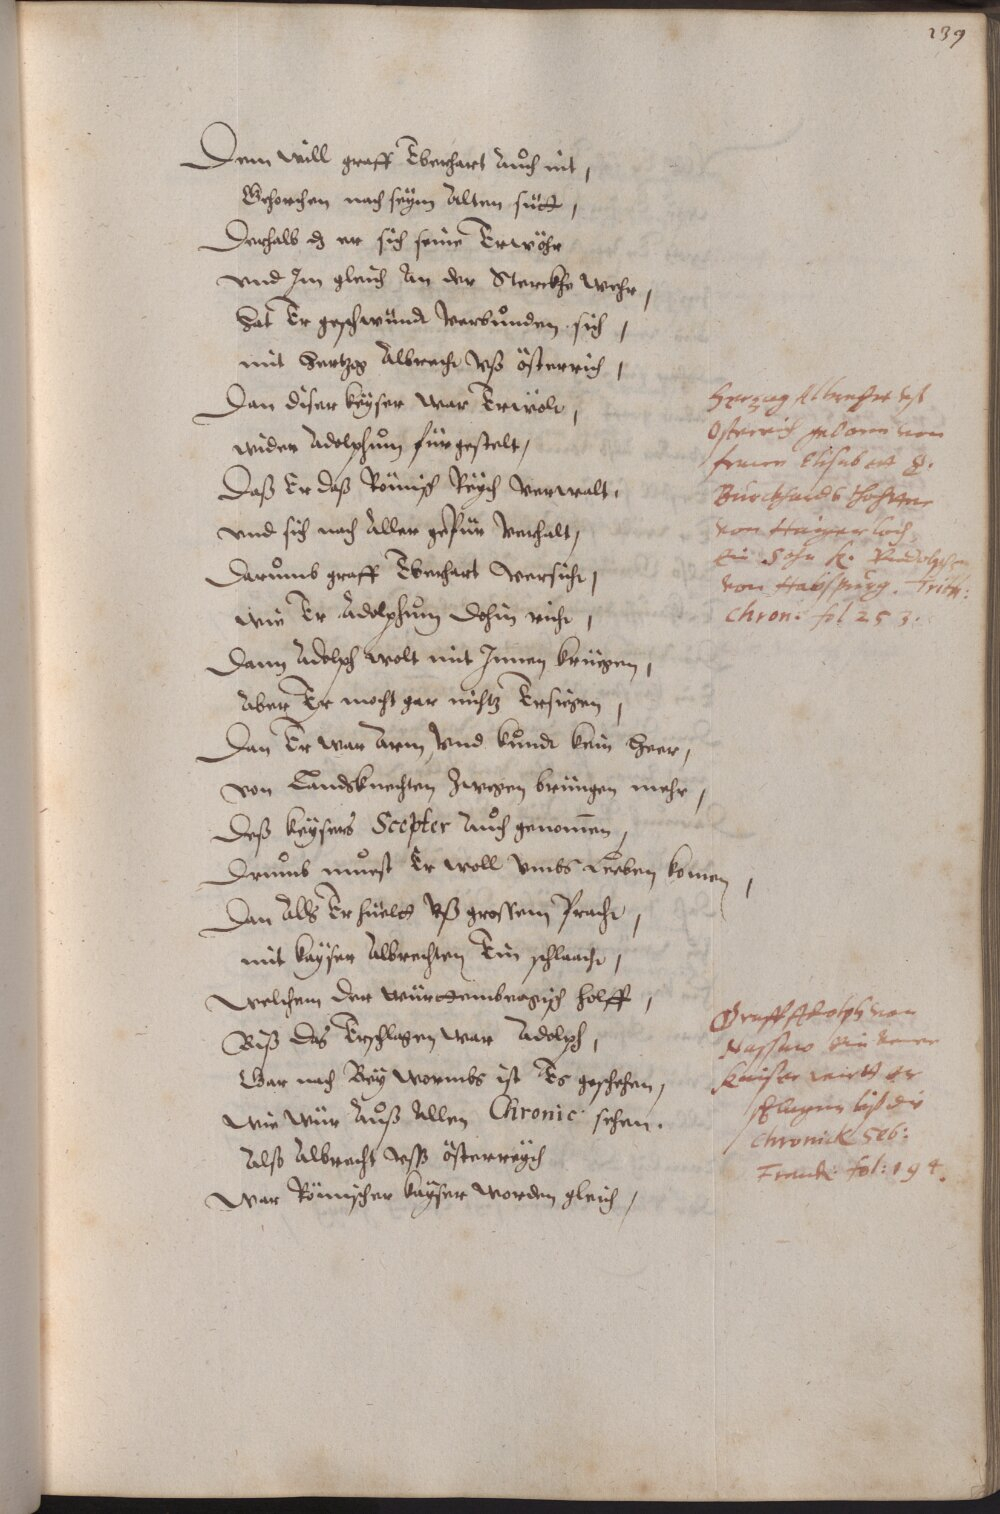 139
Dem will graff Eberhart Auch nit,
Gehorchen nach seym Alten sütt,
Derhalb dz er sich seine Erwöhr
vnd Im gleich An der Sterckhe wehr,
Hat Er geschwündt verbunden sich,
mit Hertzog Albrecht vß österrich,
Dan diser keyser war Erwölt,
wider Adolphum fürgestelt,
Daß Er daß Römisch Reych verwalt,
vnd sich nach Aller gepür verhalt,
Darumb graff Eberhart versicht,
wie Er Adolphum dohin richt,
Dann Adolph wolt mit Innen kriegen,
Aber Er mocht gar nichtz Ersiegen,
Dan Er war Arm, vnd kundt kein Heer,
von Landsknechten zwegen bringen mehr,
Deß keysers Scepter Auch genomen,
Drumb muest Er woll vmbs Leeben komen,
Dan Alls Er hüelt vß grossem Pracht,
mit kayser Albrechten Ein schlaacht,
welchem der würtembergisch holff,
Biß das Erschlagen war Adolph,
Gar nach Bey wormbs ist Es geschehen,
wie wür Auß Allen Chronic sehen.
Also Albrecht vss österreych
war Römischer kayser worden gleich,
Herzog Albrecht vß
Osterrich geboren von
frauen Elisabet g.
Burckhards thochter
von Haigerloch,
ein Sohn K. Rudolphen
von Habspurg. Trith:
Chron: fol 253.
Graff Adolph von
Nassaw
Kaiser wirtt er
schlagen liß die
Chronick Seb:
Franck: fol: 194.